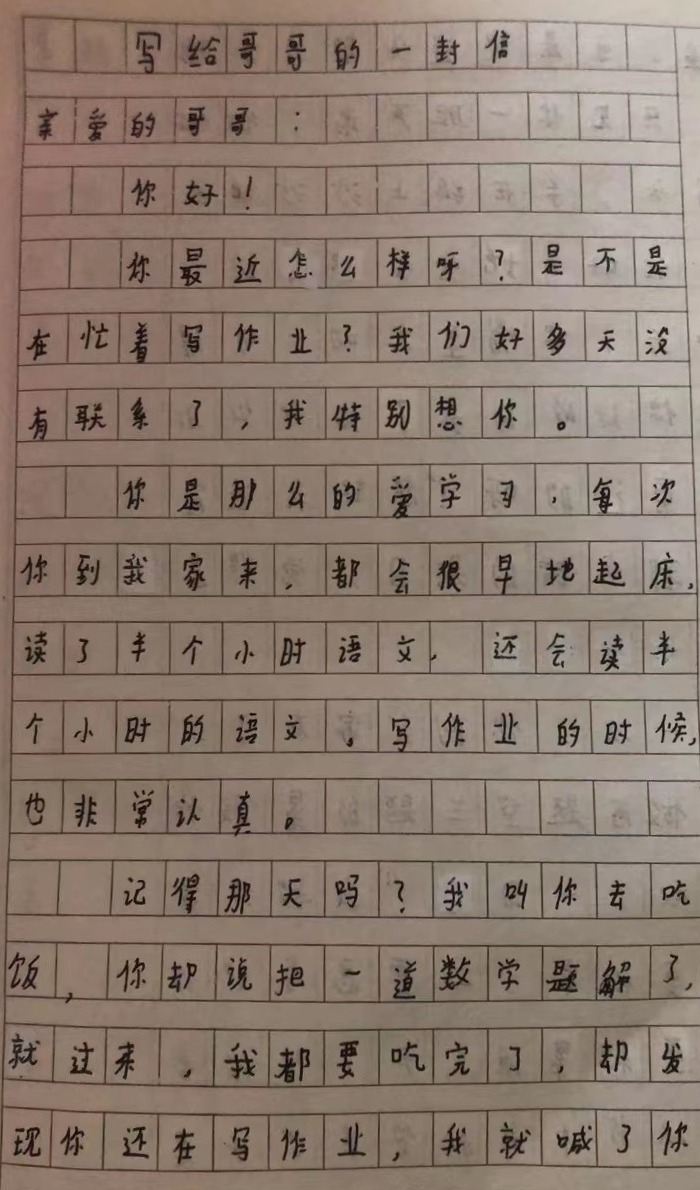 写给哥哥的一封信
亲爱的哥哥：
你好！
你最近怎么样呀？是不是
在忙着写作业？我们好多天没
有联系了，我特别想你。
你是那么的爱学习，每次
你到我家来，都会很早地起床，
读了半个小时语文，还会读半
个小时的语文。写作业的时候，
也非常认真。
记得那天吗？我叫你去吃
饭，你却说把一道数学题解了，
就过来，我都要吃完了，却发
现你还在写作业，我就喊了你